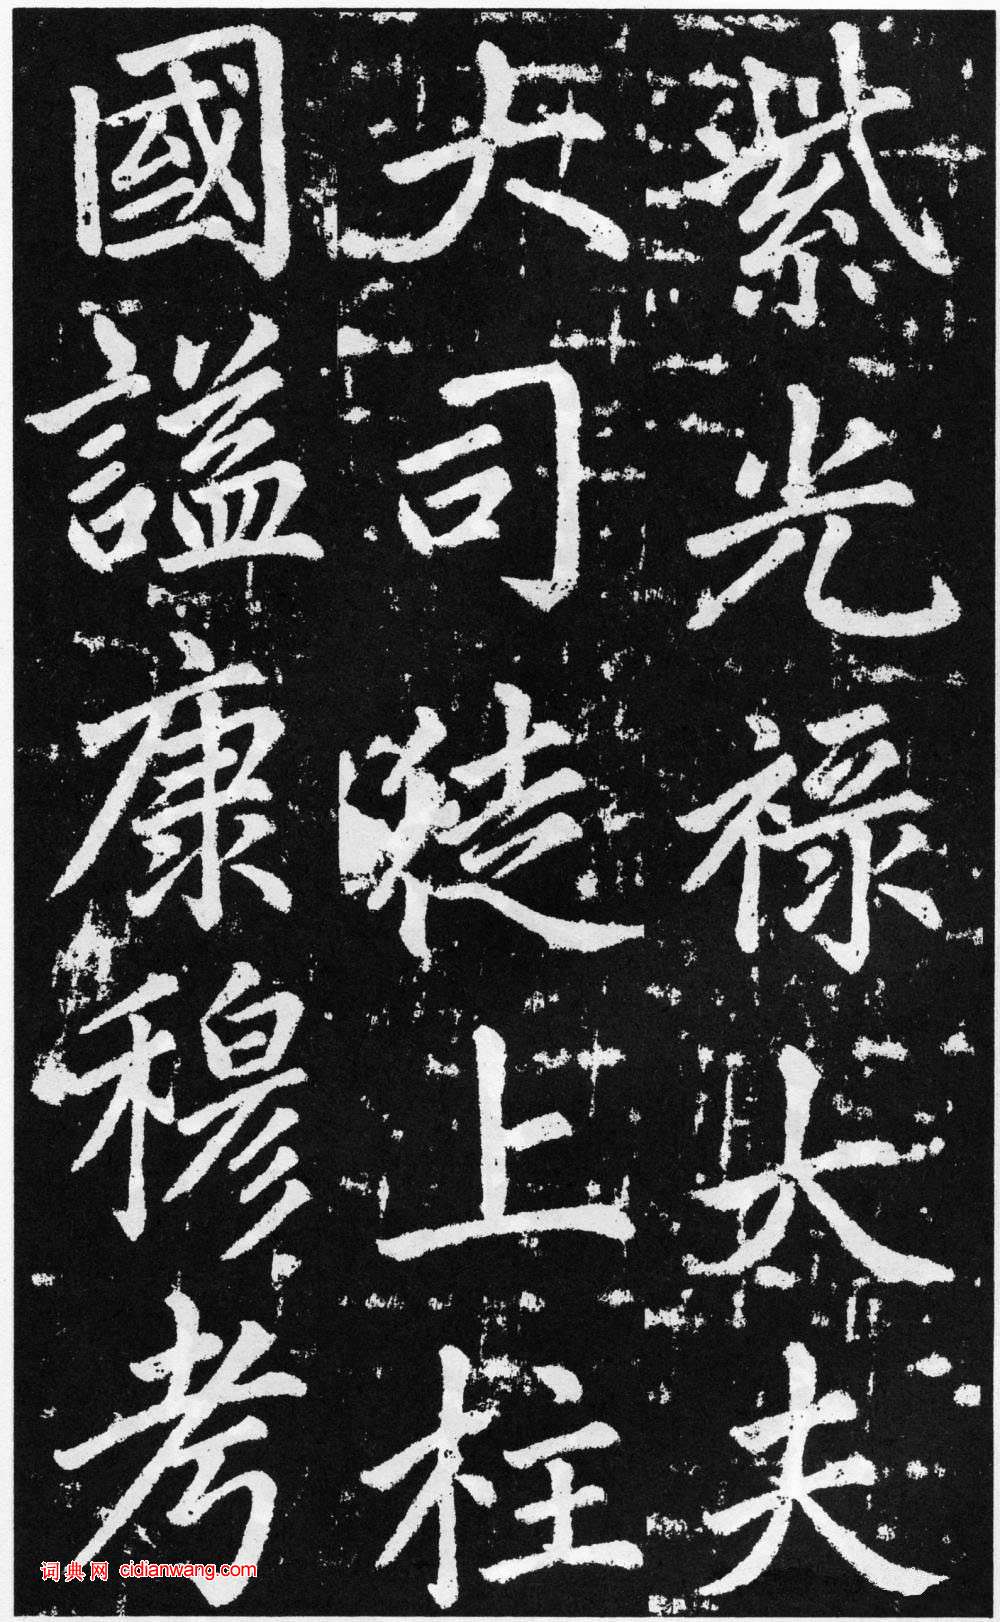 紫光禄大夫
大司徒上柱
國謚康穆考
词典网 cidianwang.com